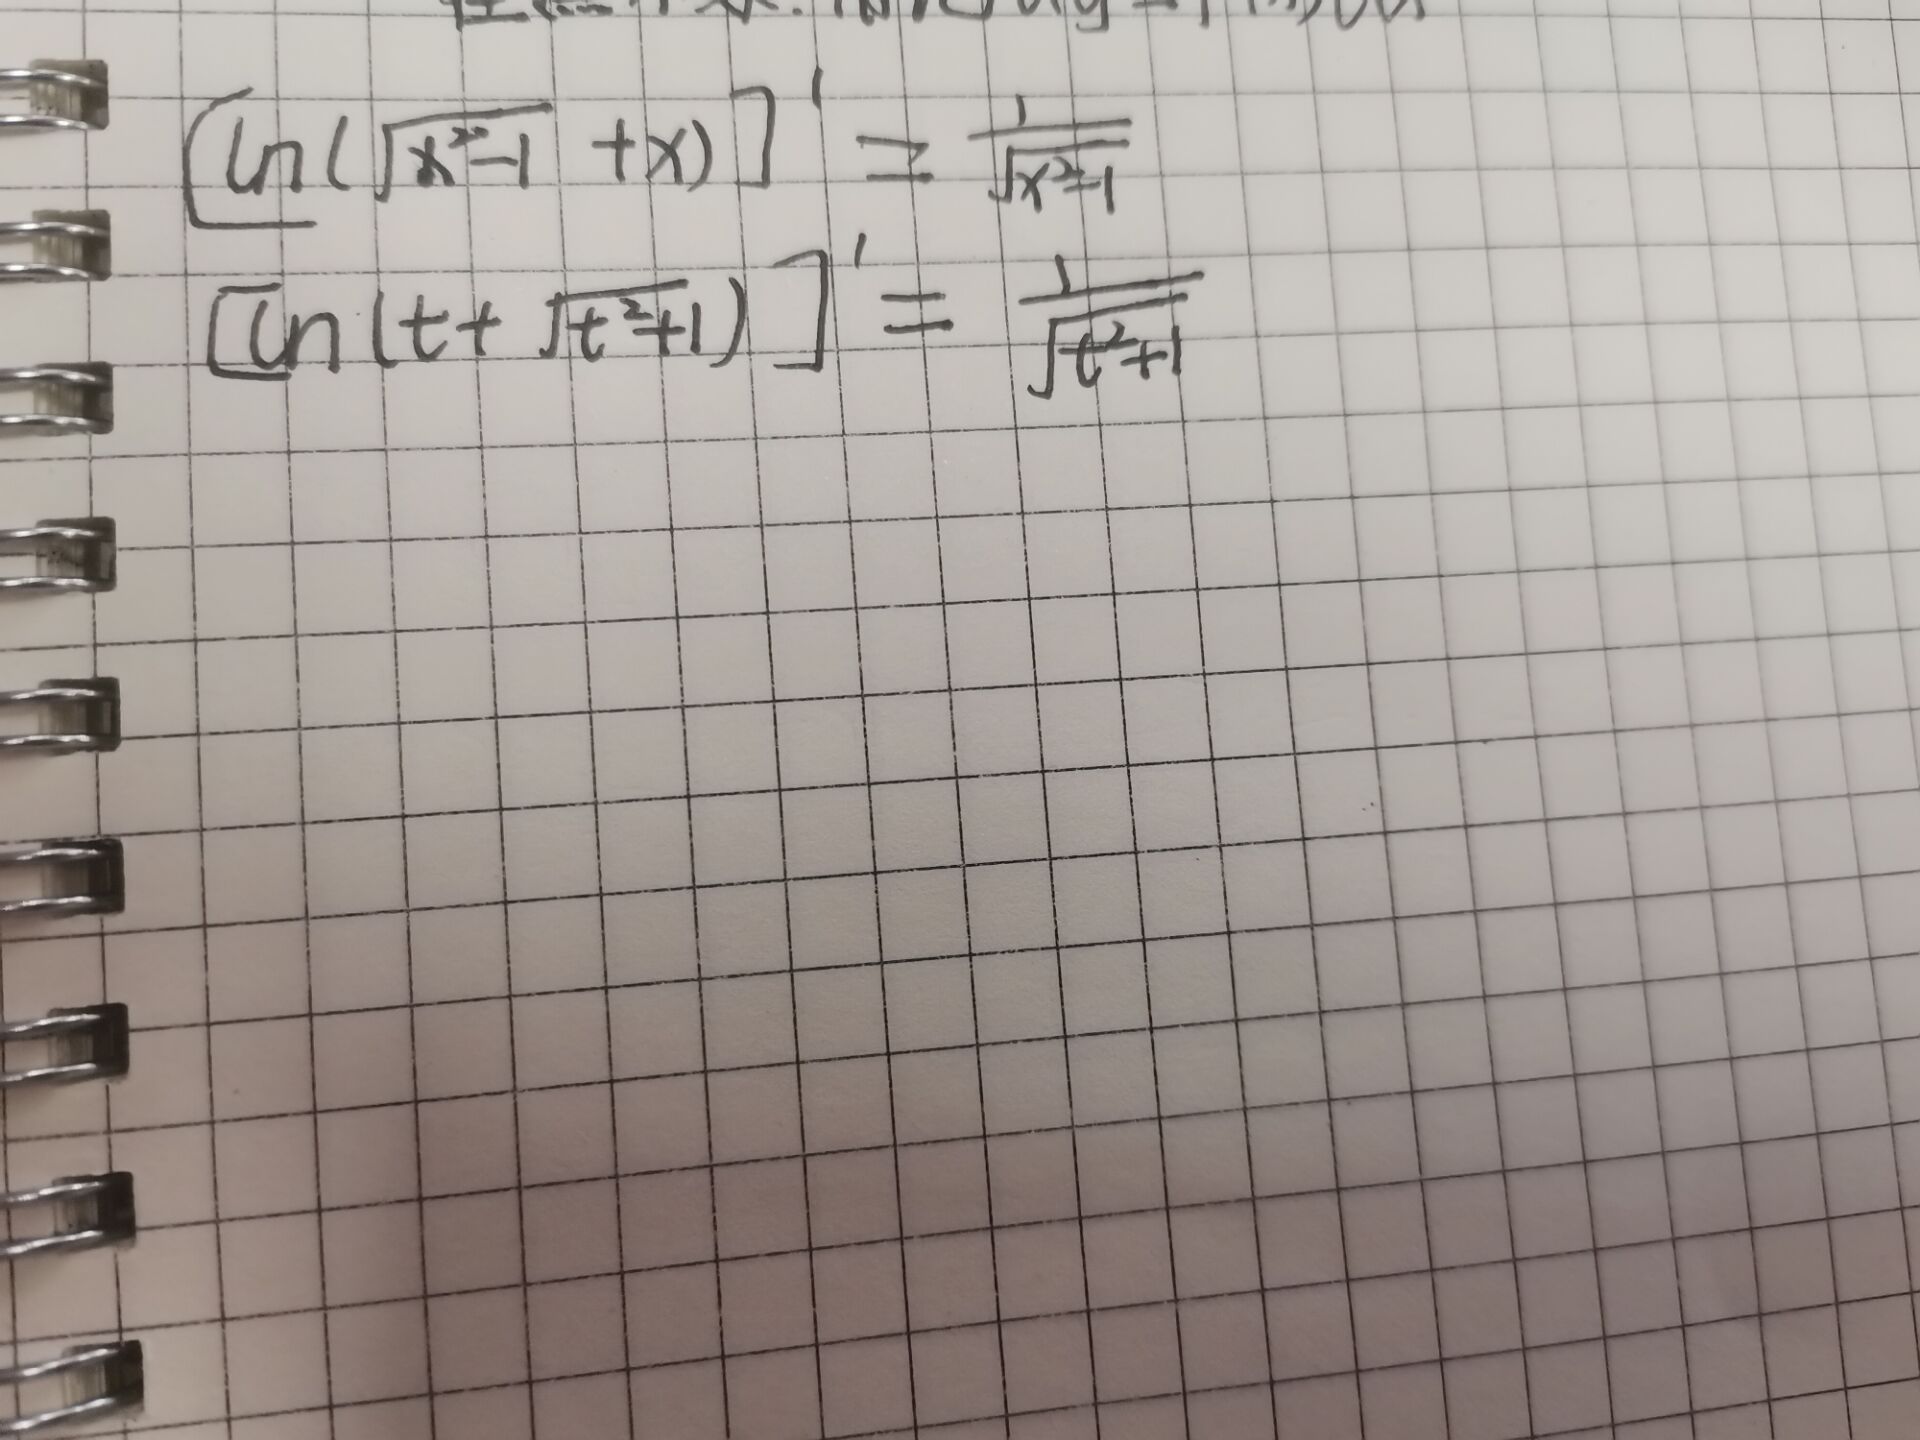 [ln(√(x²-1) +x)]' = 1/√(x²-1)
[ln(t+√(t²+1))]' = 1/√(t²+1)